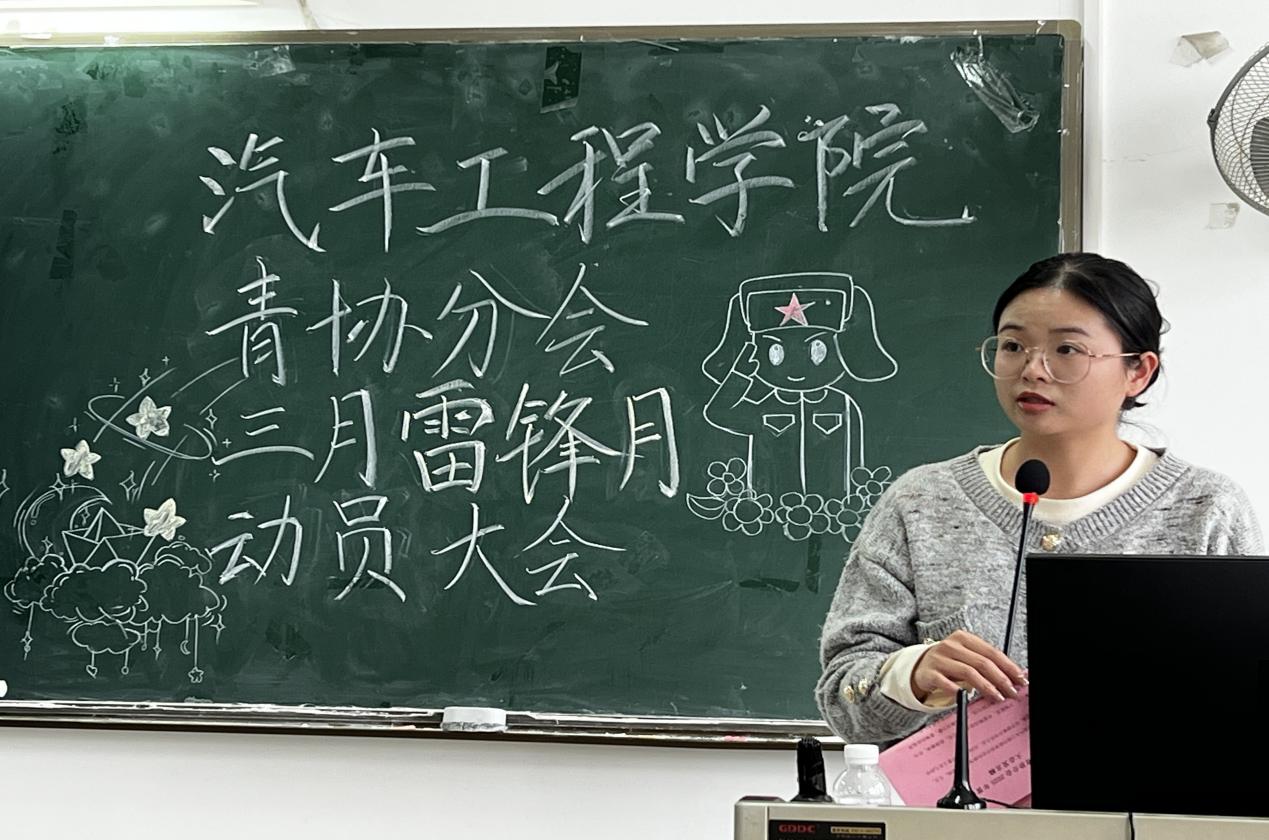 汽车工程学院
青协分会
三月雷锋月
动员大会
GDDC